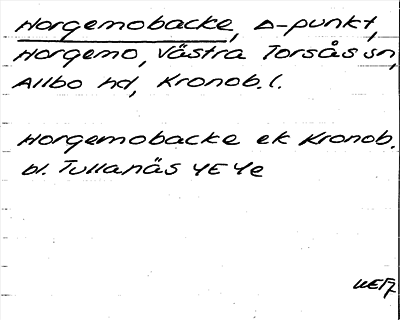 Horgemobacke, Δ-punkt,
Horgemo, Västra Torsås sn,
Allbo hd, Kronob. l.
Horgemobacke ek Kronob.
bl. Tullanäs 4E4e